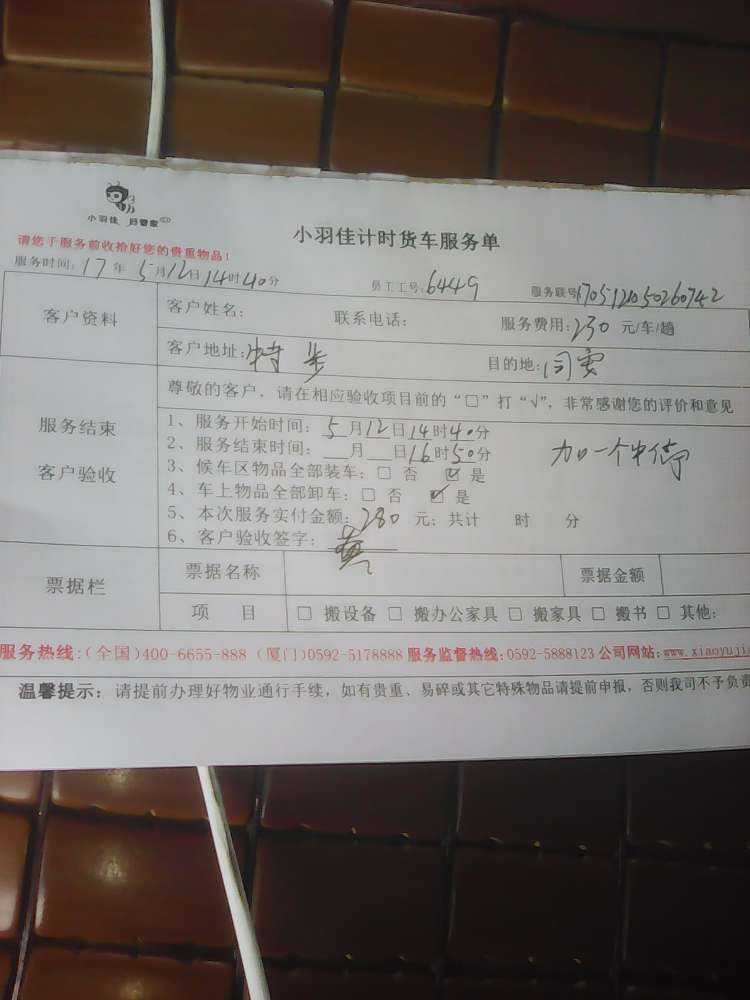 小羽佳 好管家
小羽佳计时货车服务单
请您于服务前收拾好您的贵重物品!
服务时间: 17年 5月12日14时40分 员工工号: 6449 服务联号: 1705121050260742
客户资料
客户姓名: 联系电话: 服务费用: 230 元/车/趟
客户地址: 特步 目的地: 同安
服务结束
客户验收
尊敬的客户,请在相应验收项目前的“□”打“√”,非常感谢您的评价和意见
1、服务开始时间: 5月12日14时40分
2、服务结束时间: 月 日16时50分
加一个中停
3、候车区物品全部装车: □ 否 ☑ 是
4、车上物品全部卸车: □ 否 ☑ 是
5、本次服务实付金额: 280 元; 共计 时 分
6、客户验收签字: 黄
票据栏
票据名称 票据金额
项 目 □ 搬设备 □ 搬办公家具 □ 搬家具 □ 搬书 □ 其他:
服务热线:(全国)400-6655-888 (厦门)0592-5178888 服务监督热线:0592-5888123 公司网站:www.xiaoyuji
温馨提示: 请提前办理好物业通行手续,如有贵重、易碎或其它特殊物品请提前申报,否则我司不予负责